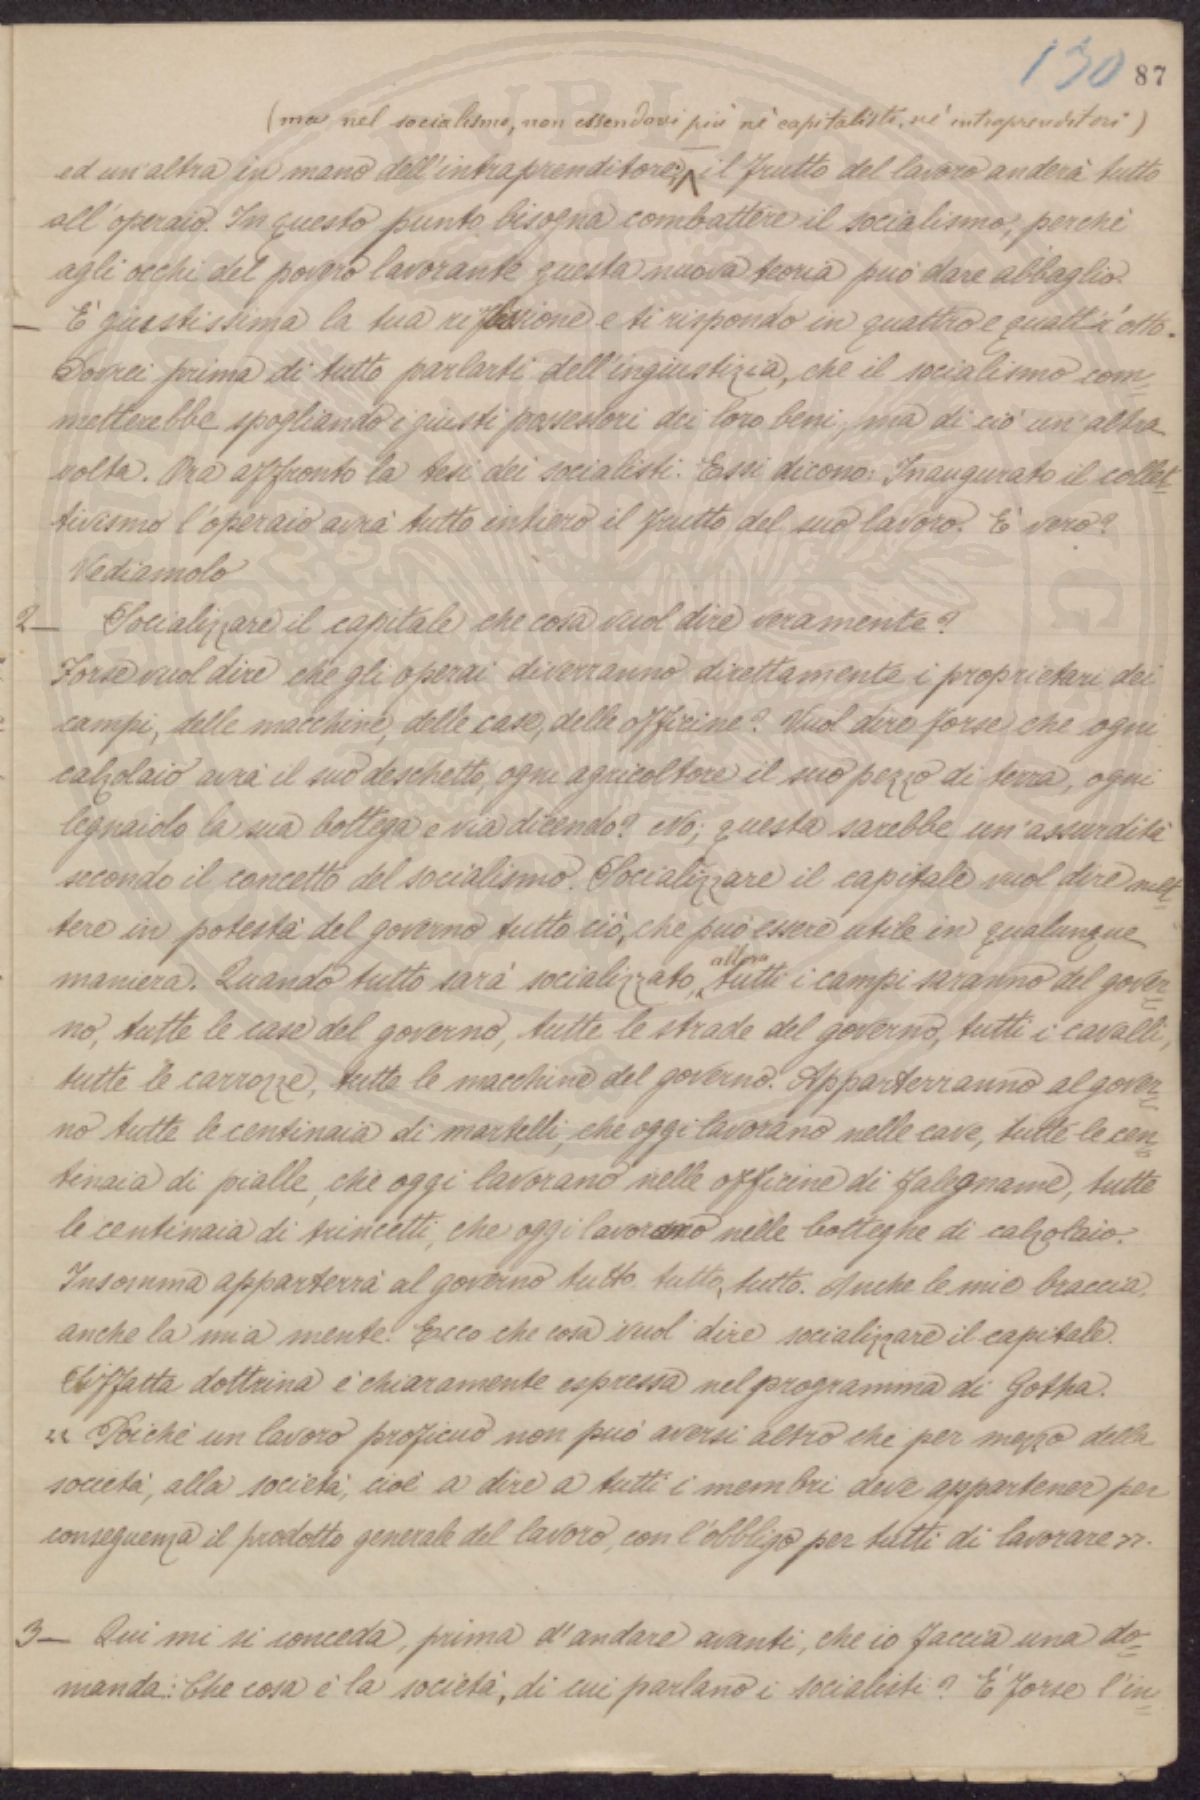 130 87
(ma nel socialismo, non essendovi più nè capitalisti, nè intraprenditori)
ed un'altra in mano dell'intraprenditore; il frutto del lavoro anderà tutto
all'operaio. In questo punto bisogna combattere il socialismo, perchè
agli occhi del povero lavorante questa nuova teoria può dare abbaglio.
— È giustissima la tua riflessione e ti rispondo in quattro e quattr'otto.
Dovrei prima di tutto parlarti dell'ingiustizia, che il socialismo com=
metterebbe spogliando i giusti possessori dei loro beni, ma di ciò un'altra
volta. Ora affronto la tesi dei socialisti. Essi dicono: Inaugurato il collet=
tivismo l'operaio avrà tutto intiero il frutto del suo lavoro. È vero?
Vediamolo
2— Socializzare il capitale che cosa vuol dire veramente?
Forse vuol dire che gli operai diverranno direttamente i proprietari dei
campi, delle macchine, delle case, delle officine? Vuol dire forse che ogni
calzolaio avrà il suo deschetto, ogni agricoltore il suo pezzo di terra, ogni
legnaiolo la sua bottega e via dicendo? No; questa sarebbe un'assurdità
secondo il concetto del socialismo. Socializzare il capitale vuol dire met=
tere in potestà del governo tutto ciò, che può essere utile in qualunque
allora
maniera. Quando tutto sarà socializzato, tutti i campi saranno del gover=
no, tutte le case del governo, tutte le strade del governo, tutti i cavalli,
tutte le carrozze, tutte le macchine del governo. Apparterranno al gover=
no tutte le centinaia di martelli, che oggi lavorano nelle cave, tutte le cen=
tinaia di pialle, che oggi lavorano nelle officine di falegname, tutte
le centinaia di trincetti, che oggi lavorano nelle botteghe di calzolaio.
Insomma apparterrà al governo tutto tutto, tutto. Anche le mie braccia,
anche la mia mente. Ecco che cosa vuol dire socializzare il capitale.
Siffatta dottrina è chiaramente espressa nel programma di Gotha.
« Poichè un lavoro proficuo non può aversi altro che per mezzo della
società, alla società, cioè a dire a tutti i membri deve appartener per
conseguenza il prodotto generale del lavoro, con l'obbligo per tutti di lavorare ».
3— Qui mi si conceda, prima d'andare avanti, che io faccia una do=
manda: Che cosa è la società, di cui parlano i socialisti? È forse l'in=